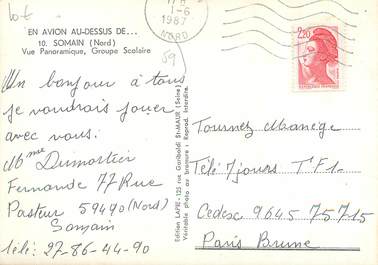 10 €
EN AVION AU-DESSUS DE...
10. SOMAIN (Nord)
Vue Panoramique, Groupe Scolaire
1-6
1987
NORD
59
2,20
Un bonjour à tous
je voudrais jouer
avec vous.
Mme Dumortier
Fernande 77 Rue
Pasteur 59490 (Nord)
Somain
télé: 27-86-44-90
Edition LAPIE - 125 rue Garibaldi St-MAUR (Seine)
Véritable photo au bromure : Reprod. Interdite.
Tournez Manège
Télé 7 jours TF1-
Cedesc 9645 75715
Paris Brune